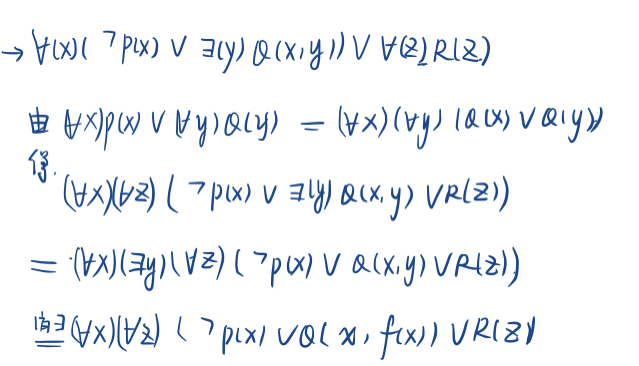 → ∀(x)( ¬p(x) ∨ ∃(y) Q(x,y)) ∨ ∀(z) R(z)
由 (∀x)p(x) ∨ (∀y)Q(y) = (∀x)(∀y) (Q(x) ∨ Q(y))
得.
(∀x)(∀z) ( ¬p(x) ∨ ∃(y) Q(x,y) ∨R(z))
= (∀x)(∃y)(∀z) ( ¬p(x) ∨ Q(x,y) ∨R(z))
(∀x)(∀z) ( ¬p(x) ∨Q( x, f(x)) ∨R(z)